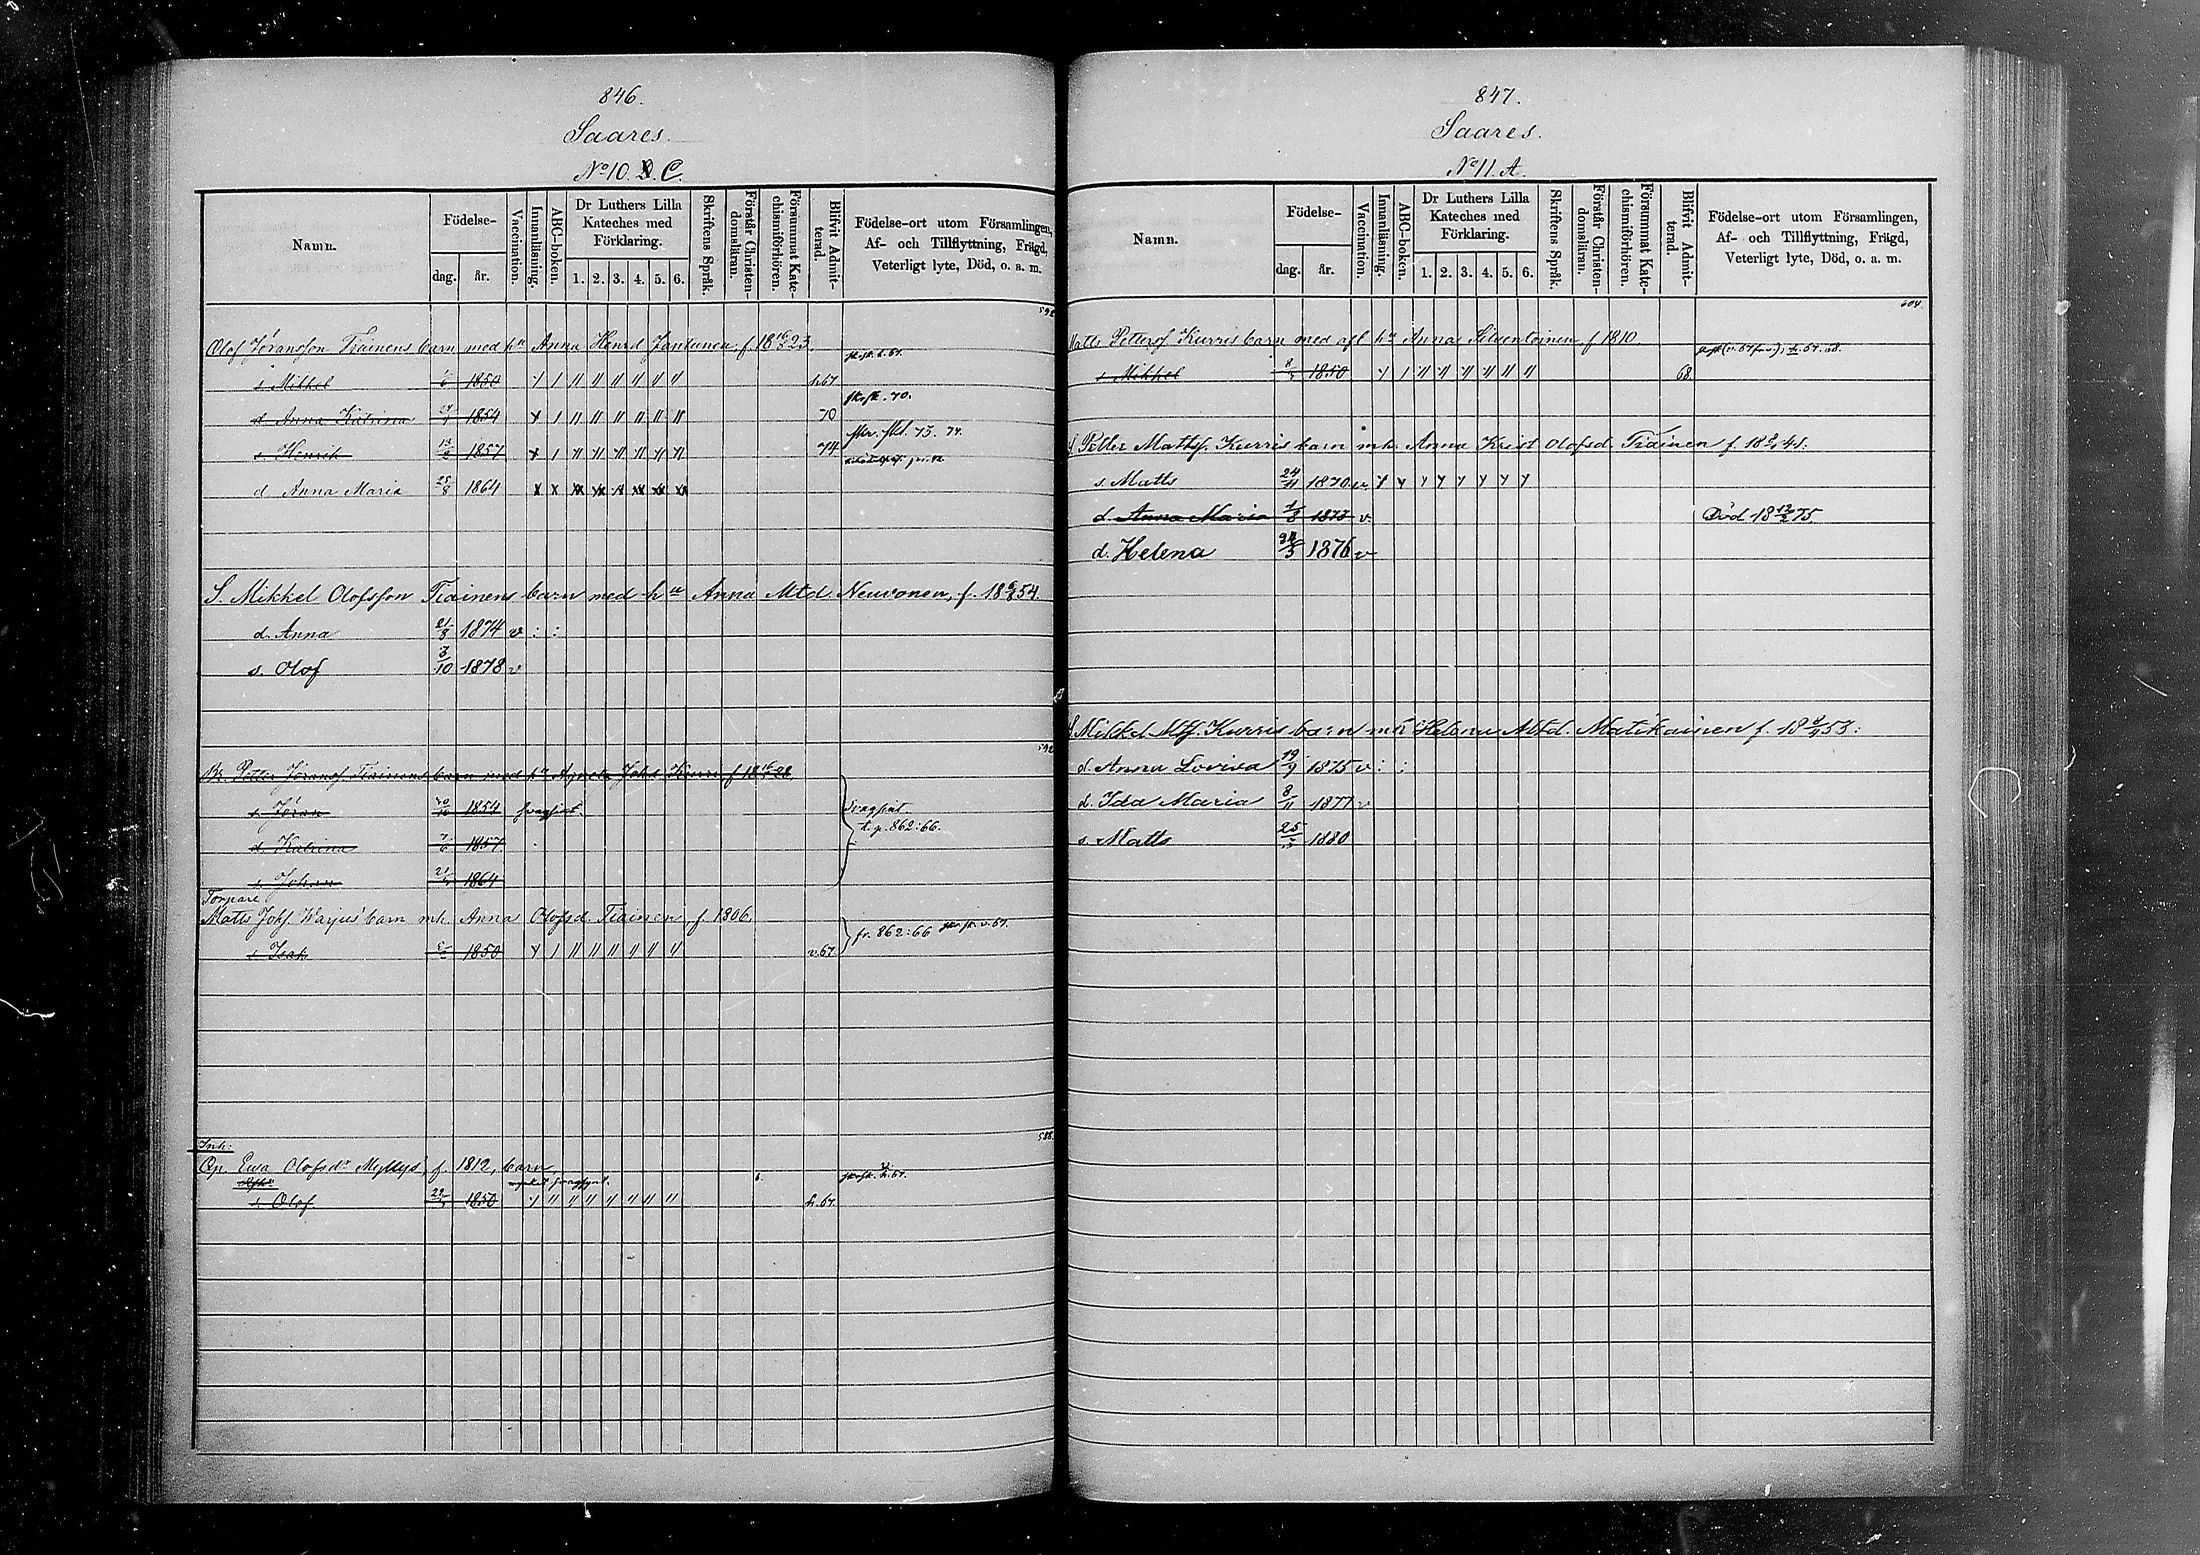 846.
Saares.
No 10. C.
Namn.
Födelse-
dag.
år.
Vaccination.
Innanläsning.
ABC-boken.
Dr Luthers Lilla
Kateches med
Förklaring.
1. 2. 3. 4. 5. 6.
Skriftens Språk.
Förstår Christen-
domsläran.
Försummat Kate-
chismiförhören.
Blifvit Admit-
terad.
Födelse-ort utom Församlingen,
Af- och Tillflyttning, Frägd,
Veterligt lyte, Död, o. a. m.
592
Olof Jöransson Tiainens barn med hu Anna Henrd Jantunen f. 18 16/8 23.
s. Mikkel 1/6 1850 h.67
d. Anna Katrina 1854 70
skrsk. 70.
s. Henrik 1857 74
skr. skl. 73. 74.
d. Anna Maria 25/8 1864
S. Mikkel Olofsson Tiainens barn med hu Anna Mtd Neuvonen, f. 18 54.
d. Anna 21/8 1874 v : :
s. Olof 3/10 1878 v
592
Br. Petter Joransf Tiainens barn med hu Agneta Johd Kurri f 18 28
s. Jöran 1854 svagsint.
svagsint
t. p. 862:66.
d. Katrina 1857
s. Johan 1864
Torpare
Matts Johs. Warjus' barn mh. Anna Olofsd. Tiainen f. 1806.
fr. 862:66 skrsk. v. 67.
s. Isak 1850 v.67.
588.
Inh:
Ewa Olofsdr Myllys, f. 1812, barn
mycket svagsynt.
s. Olof 1850 h.67.
847.
Saares.
No 11. A.
Namn.
Födelse-
dag.
år.
Vaccination.
Innanläsning.
ABC-boken.
Dr Luthers Lilla
Kateches med
Förklaring.
1. 2. 3. 4. 5. 6.
Skriftens Språk.
Förstår Christen-
domsläran.
Försummat Kate-
chismiförhören.
Blifvit Admit-
terad.
Födelse-ort utom Församlingen,
Af- och Tillflyttning, Frägd,
Veterligt lyte, Död, o. a. m.
604.
Matts Petterss Kurris barn med afl hu Anna Silventoinen f 1810.
s. Mikkel 1850 68.
Petter Mattss. Kurris barn mh. Anna Krist Olofsd. Tiainen f. 18 41.
s. Matts 24/11 1870 v
d. Anna Maria 1/8 1873 v. Död 18 12/2 75
d. Helena 1876 v
Mikkel Mtss. Kurris barn m. hu Helena Mtsd. Matikainen f. 18 53:
d. Anna Lovisa 19/9 1875 v : :
d. Ida Maria 8/11 1877 v
s. Matts 1880